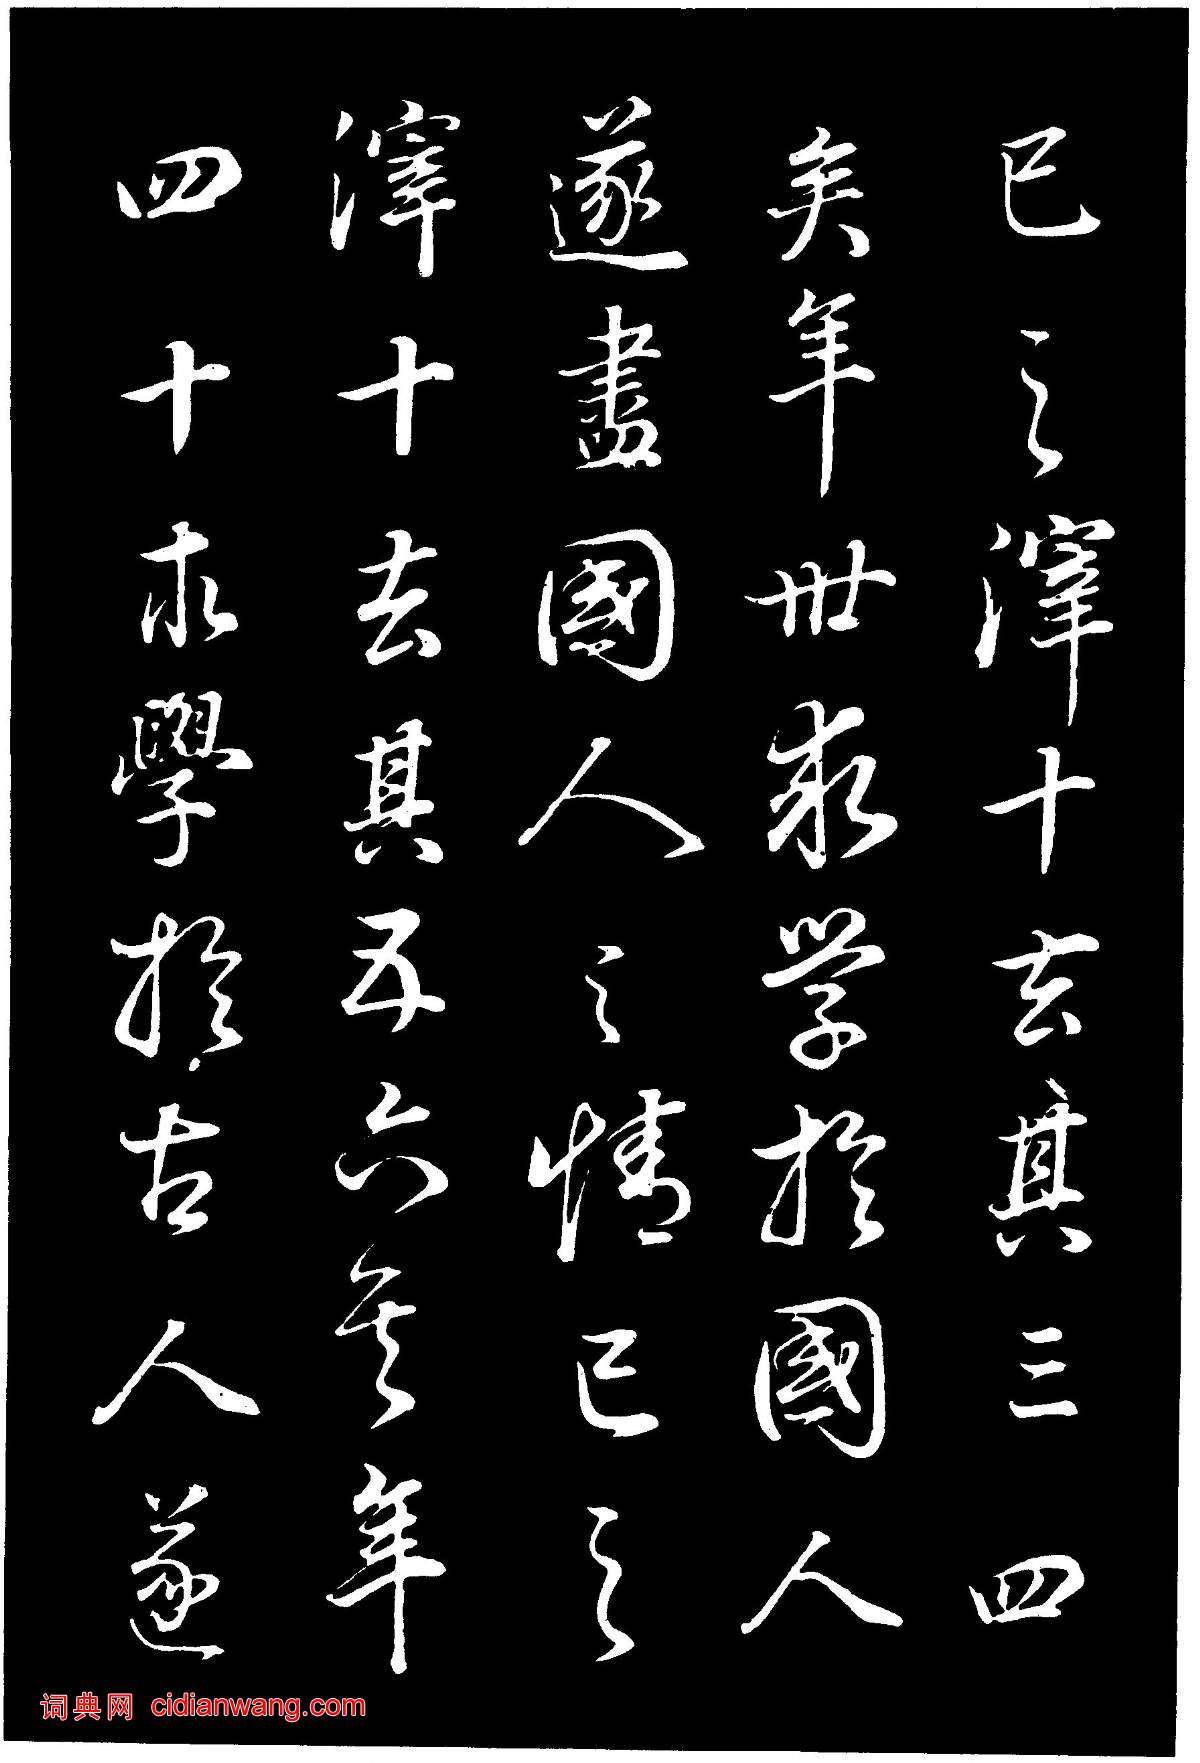 己之滓十去其三四
矣年卅求学於國人
遂盡國人之情己之
滓十去其五六矣年
四十求學於古人遂
词典网 cidianwang.com